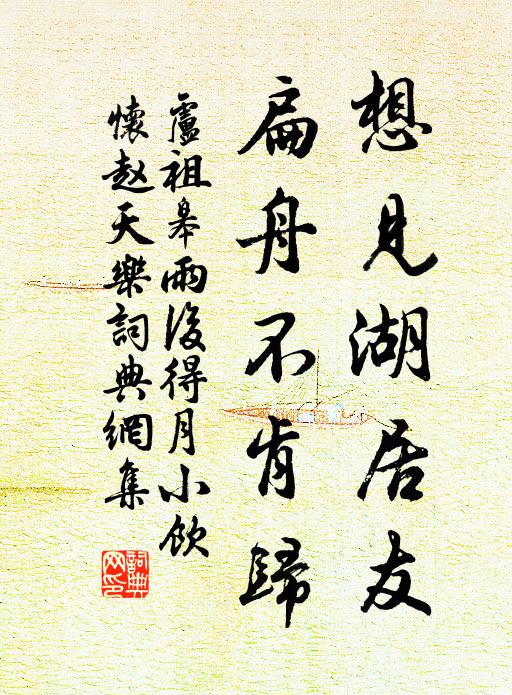 想見湖居友
扁舟不肯歸
盧祖皋雨後得月小飲
懷赵天樂詞典網集
詞典網印